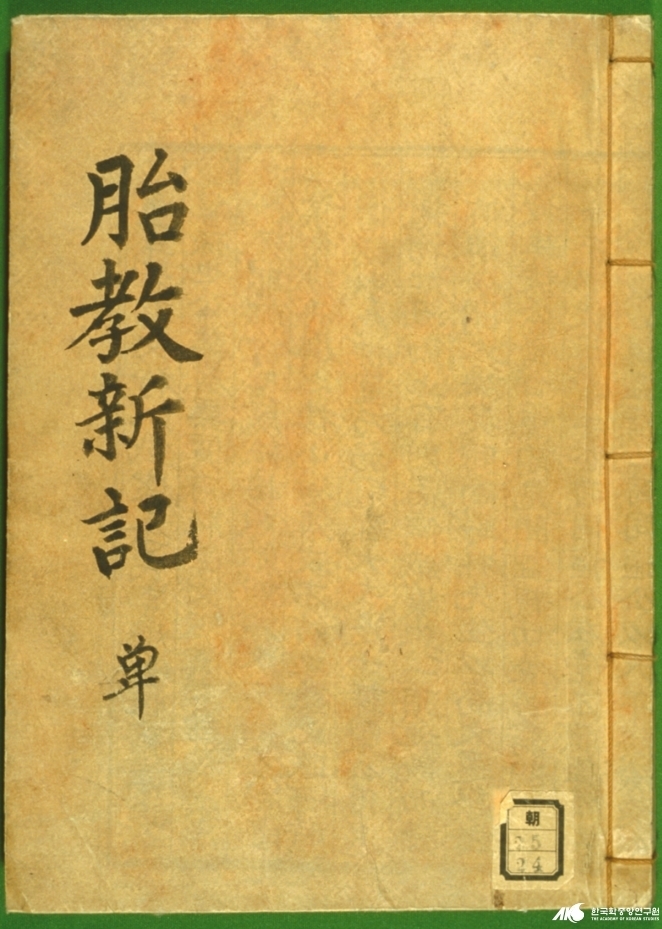 胎教新記
単
朝
25
24
한국학중앙연구원
THE ACADEMY OF KOREAN STUDIES